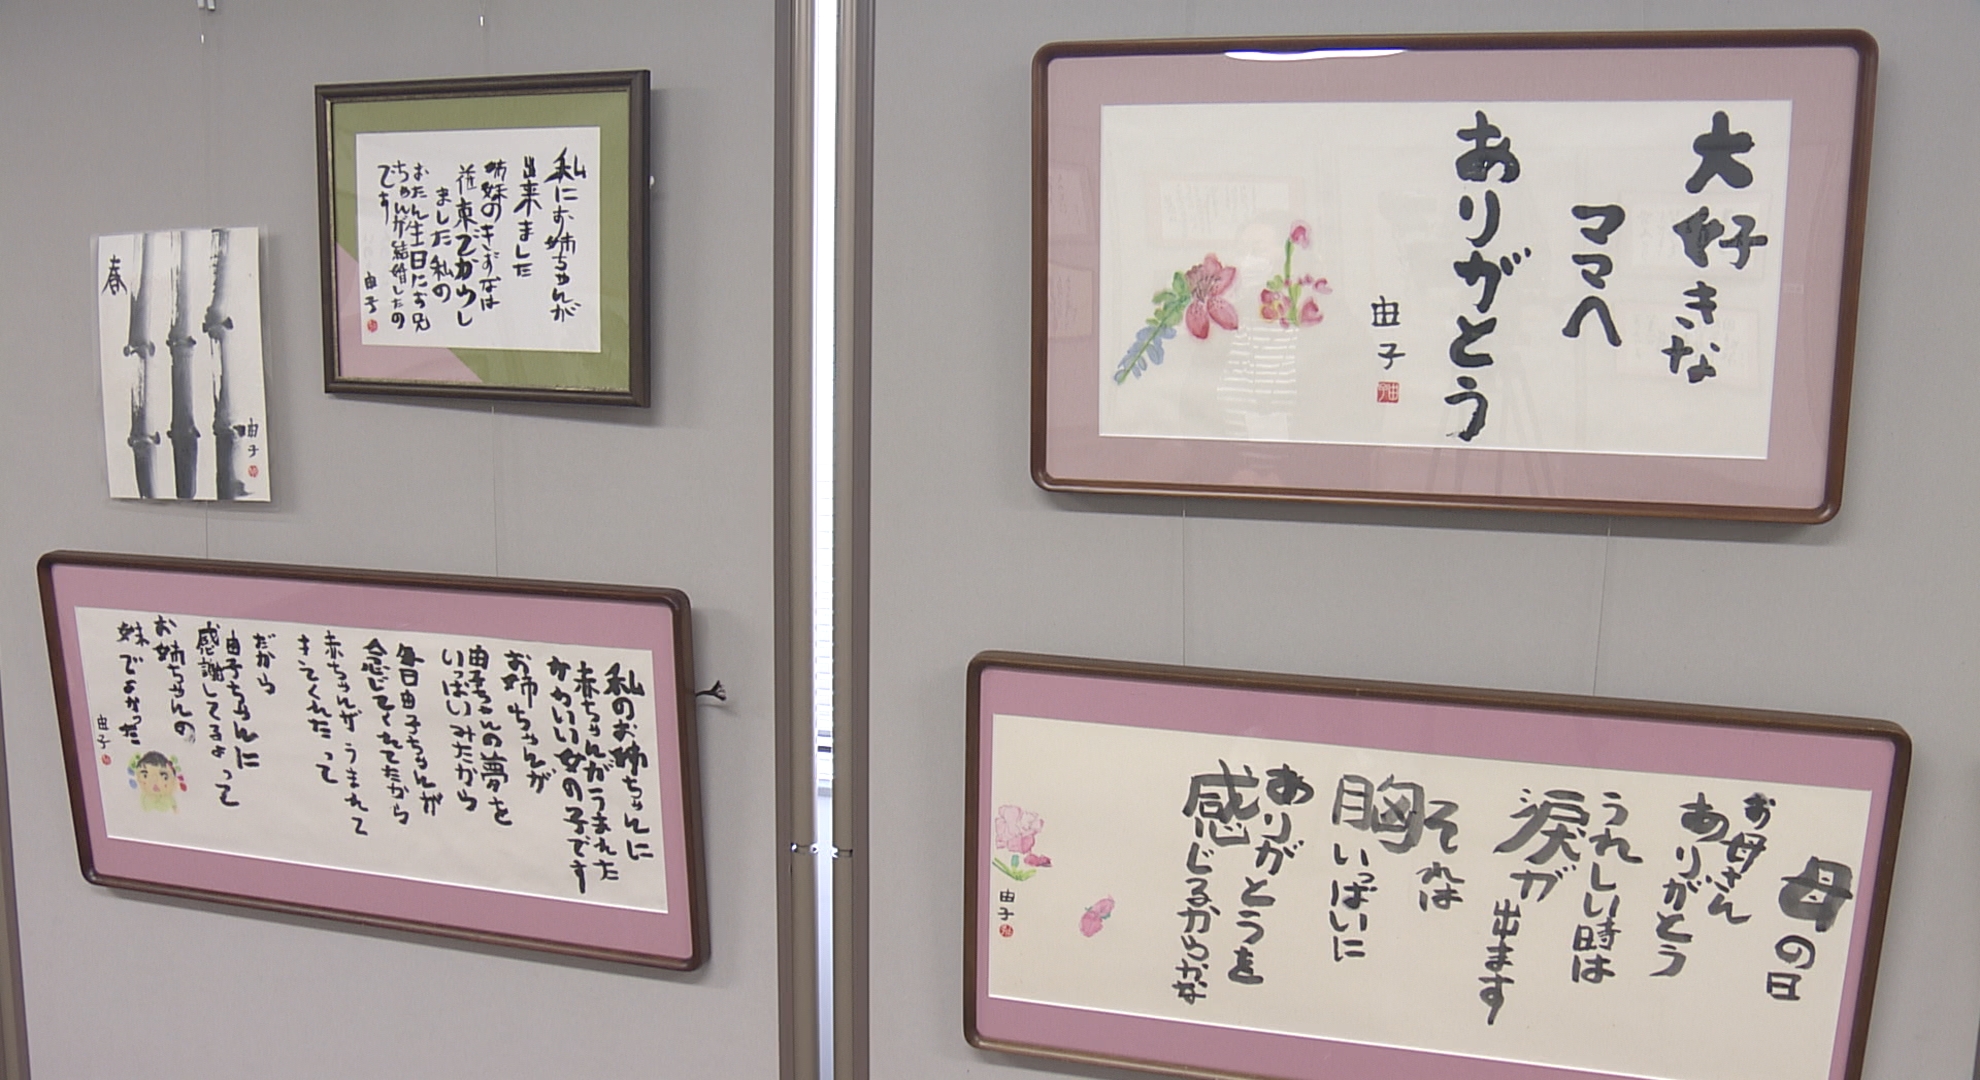 大好きな
ママへ
ありがとう
由子
母の日
お母さん
ありがとう
うれしい時は
涙が出ます
それは
胸いっぱいに
ありがとうを
感じるからかな
由子
私にお姉ちゃんが
出来ました
姉妹のきずなは
花束でかかし
ました 私の
おたん生日にお兄
ちゃんが結婚したの
です
由子
春
由子
私のお姉ちゃんに
赤ちゃんがうまれた
かわいい女の子です
お姉ちゃんが
由子ちゃんの夢を
いっぱいみたから
毎日由子ちゃんが
念じてくれてたから
赤ちゃんがうまれて
きてくれたって
だから
由子ちゃんに
感謝してるよって
お姉ちゃんの
妹でよかった
由子